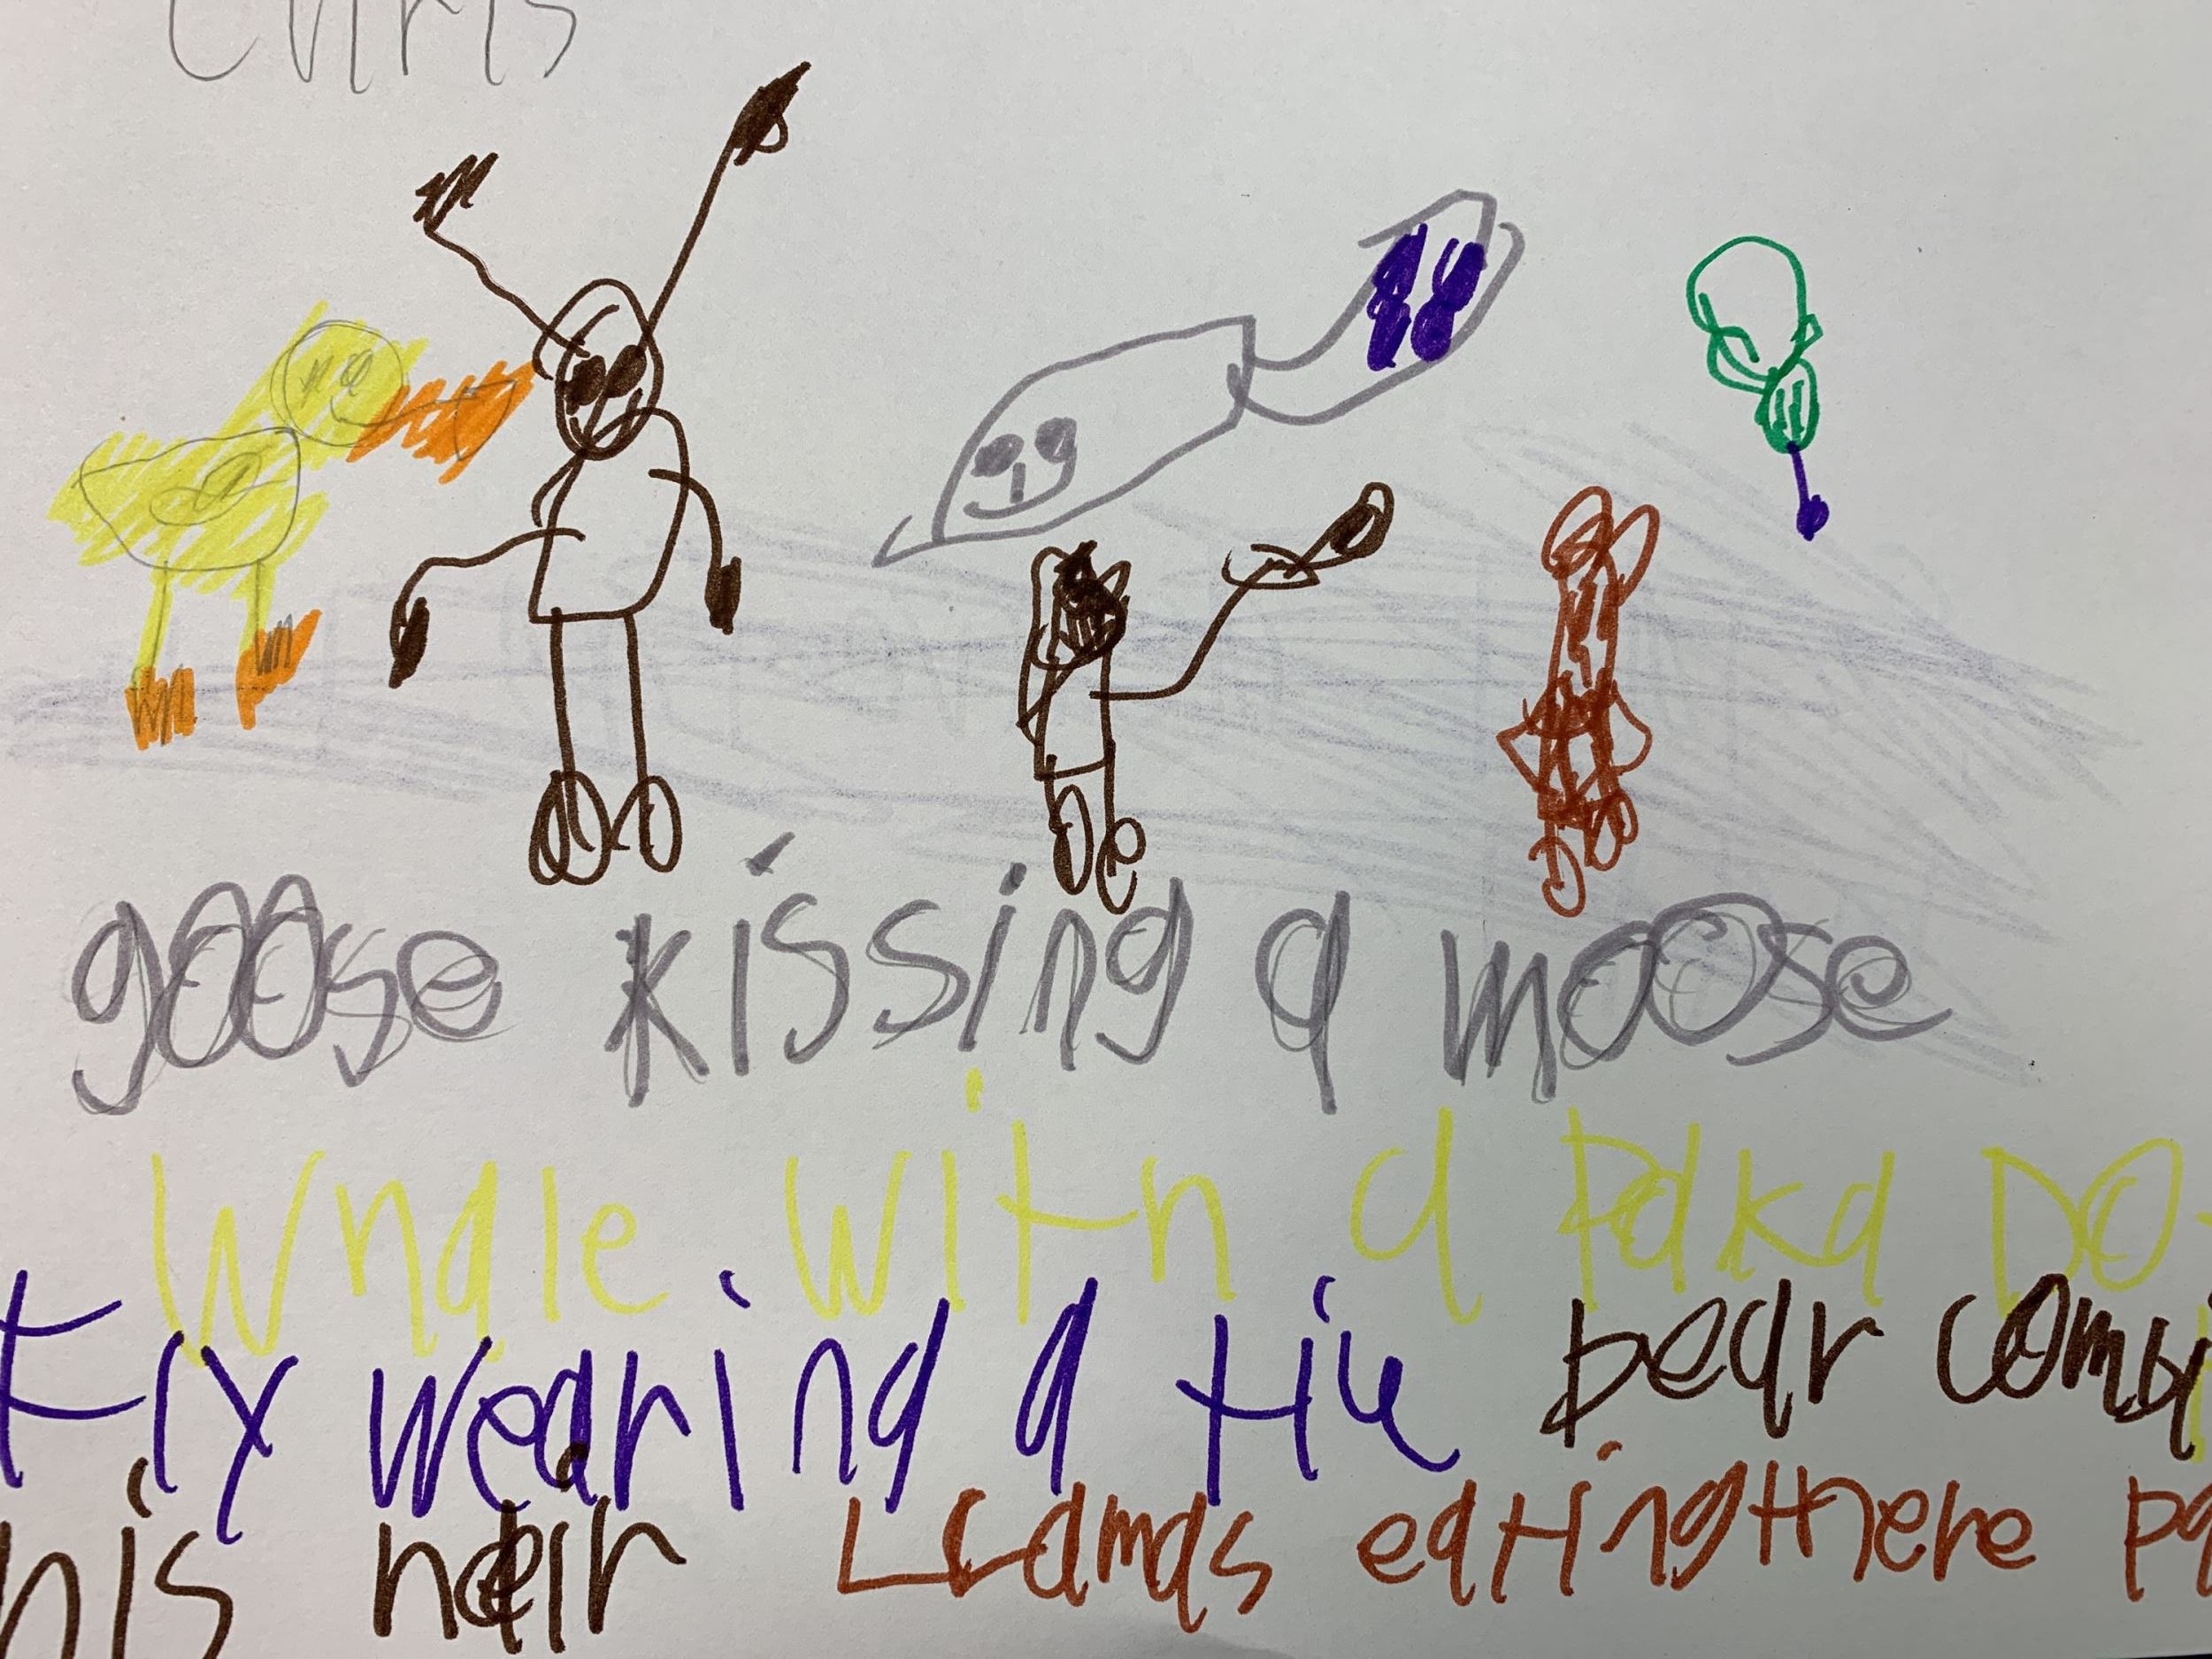 Chris
goose kissing a moose
Whale with a Palka DO
fly wearing a tie bear combi
his hair Lramas eatingthere pa